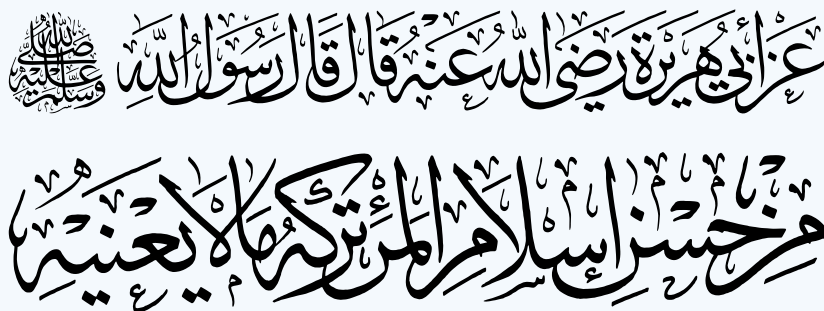 عَنْ أَبِي هُرَيْرَةَ رَضِيَ اللهُ عَنْهُ قَالَ قَالَ رَسُولُ اللهِ ﷺ
مِنْ حُسْنِ إِسْلَامِ الْمَرْءِ تَرْكُهُ مَا لَا يَعْنِيهِ